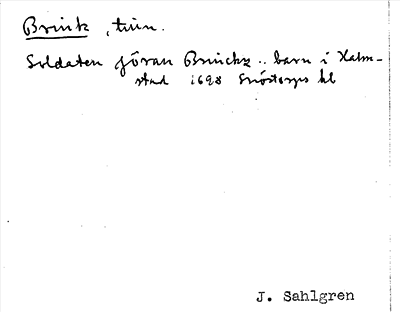 Brink, tnn.
Soldaten Jöran Brinckz .. barn i Halm-
stad 1698 Snöstorps kb
J. Sahlgren